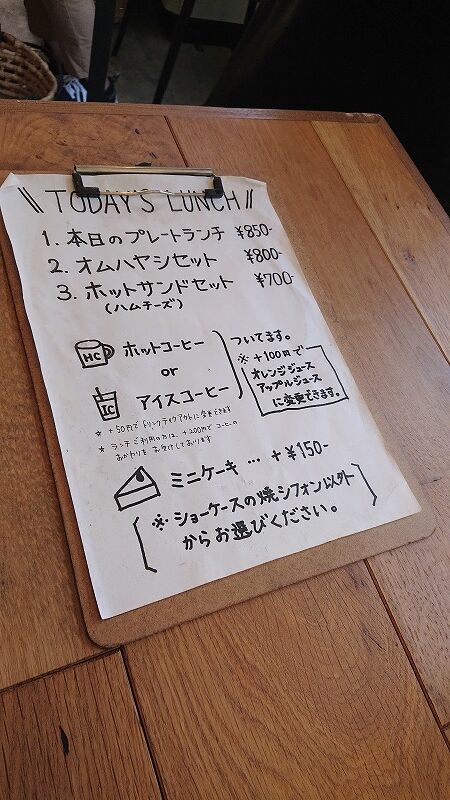 \\ TODAY'S LUNCH //
1. 本日のプレートランチ ¥850-
2. オムハヤシセット ¥800-
3. ホットサンドセット ¥700-
(ハムチーズ)
HC ホットコーヒー
or
IC アイスコーヒー
ついてます。
※ +100円で
オレンジジュース
アップルジュース
に変更できます。
※ +50円でドリンクテイクアウトに変更できます
★ ランチご利用の方は、+200円でコーヒーの
おかわりをお受けしております
ミニケーキ … + ¥150-
(※ ショーケースの焼シフォン以外
からお選びください。)